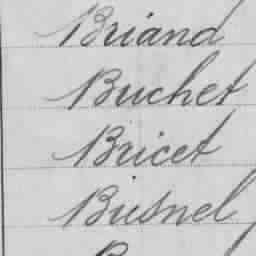 Briand
Buchet
Bricet
Busnel